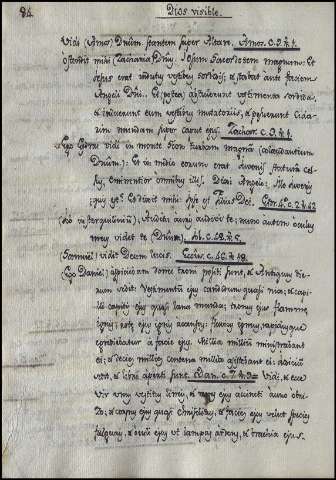 84 Dios visible.
Vidi (Amos) Dñum stantem super Altare. Amos. c. 9. ℣. 1.
ostendit mihi (Zachariæ) Dñs. Iesum Sacerdotem magnum: Et
Iesus erat indutus vestibus sordidis, et stabat ante faciem
Angeli Dñi. Et abstulerunt vestimenta sordida,
et induerunt eum vestibus mutatoriis, et posuerunt Cidarim
mundam super caput ejus. Zachar. c. 3. ℣. 1.
Ego vidi in monte Sion turbam magnam (collaudantium
Dñum): Et in medio eorum erat Juvenis staturâ celsus,
eminentior omnibus illis. Dixi Angelo: Ille Juvenis
quis est? Et dixit mihi: Ipse est Filius Dei. c. 2. ℣. 42
Auditu auris audivi te: nunc autem oculus
meus videt te (Dñum). c. 42. ℣. 5.
vidit Deum lucis. c. 46. ℣. 18.
Ego Daniel aspiciebam donec troni positi sunt, et Antiquus dierum
sedit: Vestimentum ejus candidum quasi nix; et capilli
capitis ejus quasi lana munda; tronus ejus flammæ
ignis; rotæ ejus ignis accensus: fluvius igneus, rapidusque
egrediebatur à facie ejus. Millia millium ministrabant
ei; et decies millies centena millia assistebant ei: Judicium
sedit, et libri aperti sunt. Dan. c. 7. ℣. 9. Vidi, et ecce
vir unus vestitus lineis, et renes ejus accincti auro obrizo;
et corpus ejus quasi Chrysolitus, et facies ejus velut species
fulguris, et oculi ejus ut lampas ardens, et brachia ejus